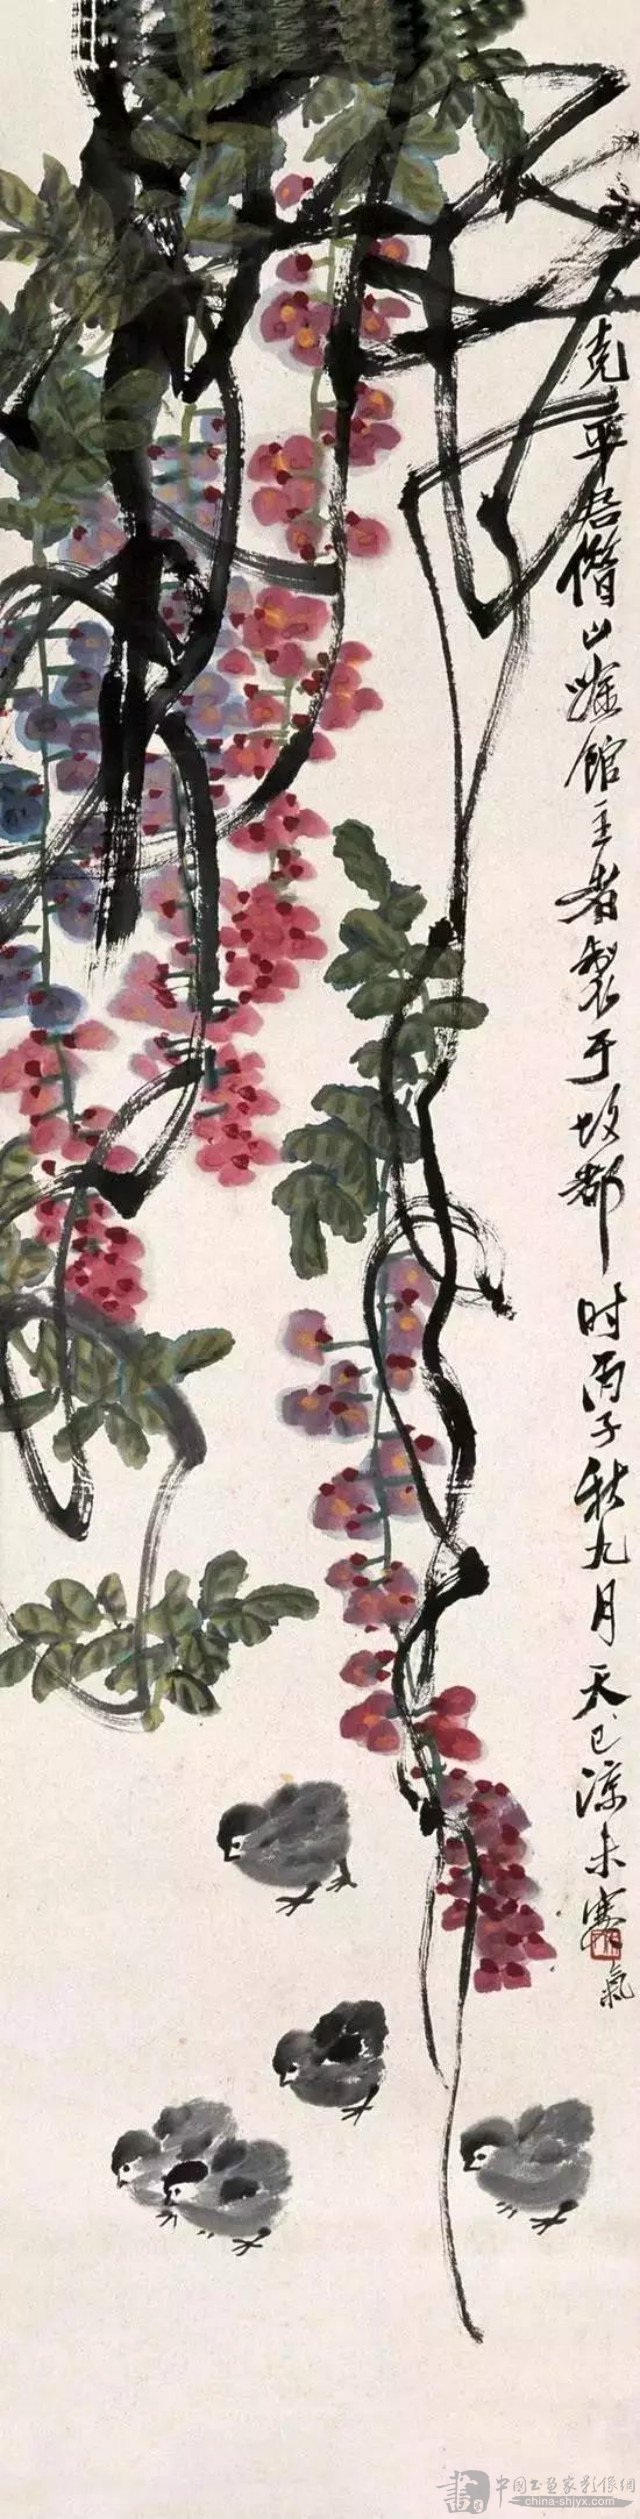 克平吾借山馆主者制于故都时丙子秋九月天已凉未寒
气
中国书画家影像网
www.china-shjyx.com